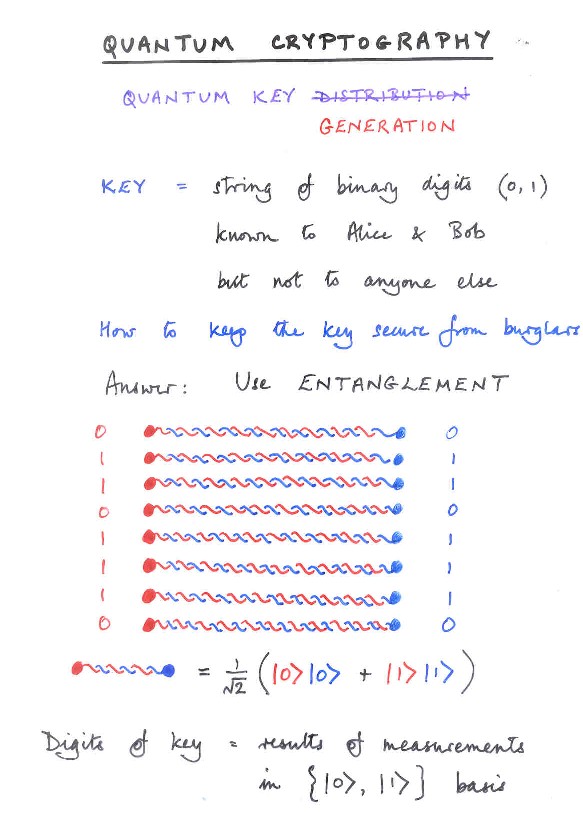 QUANTUM CRYPTOGRAPHY
QUANTUM KEY DISTRIBUTION
GENERATION
KEY = string of binary digits (0,1)
known to Alice & Bob
but not to anyone else
How to keep the key secure from burglars
Answer: Use ENTANGLEMENT
0 0
1 1
1 1
0 0
1 1
1 1
1 1
0 0
= 1/√2 (|0>|0> + |1>|1>)
Digits of key = results of measurements
in {|0>, |1>} basis